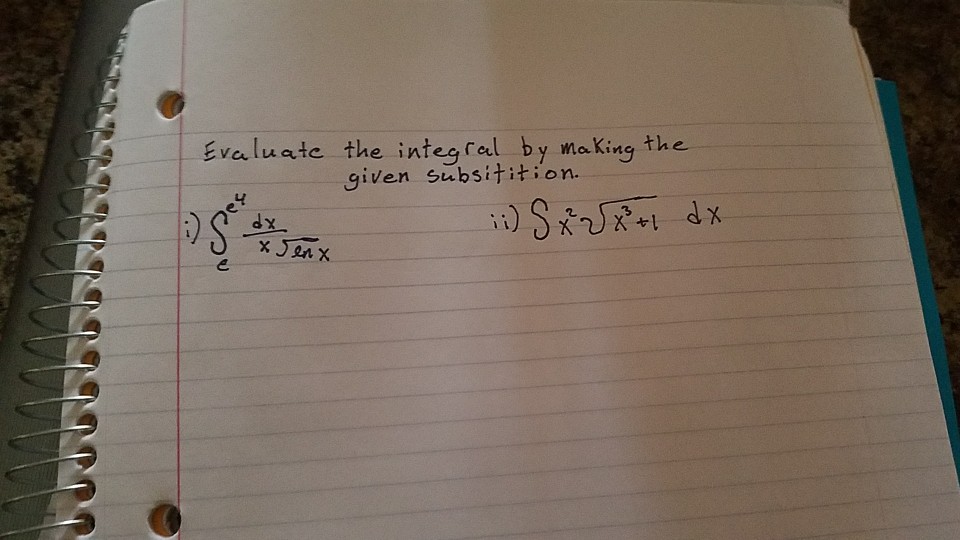 Evaluate the integral by making the
given subsitition.
i) ∫_e^{e^4} dx / (x √ln x) ii) ∫ x² √(x³+1) dx